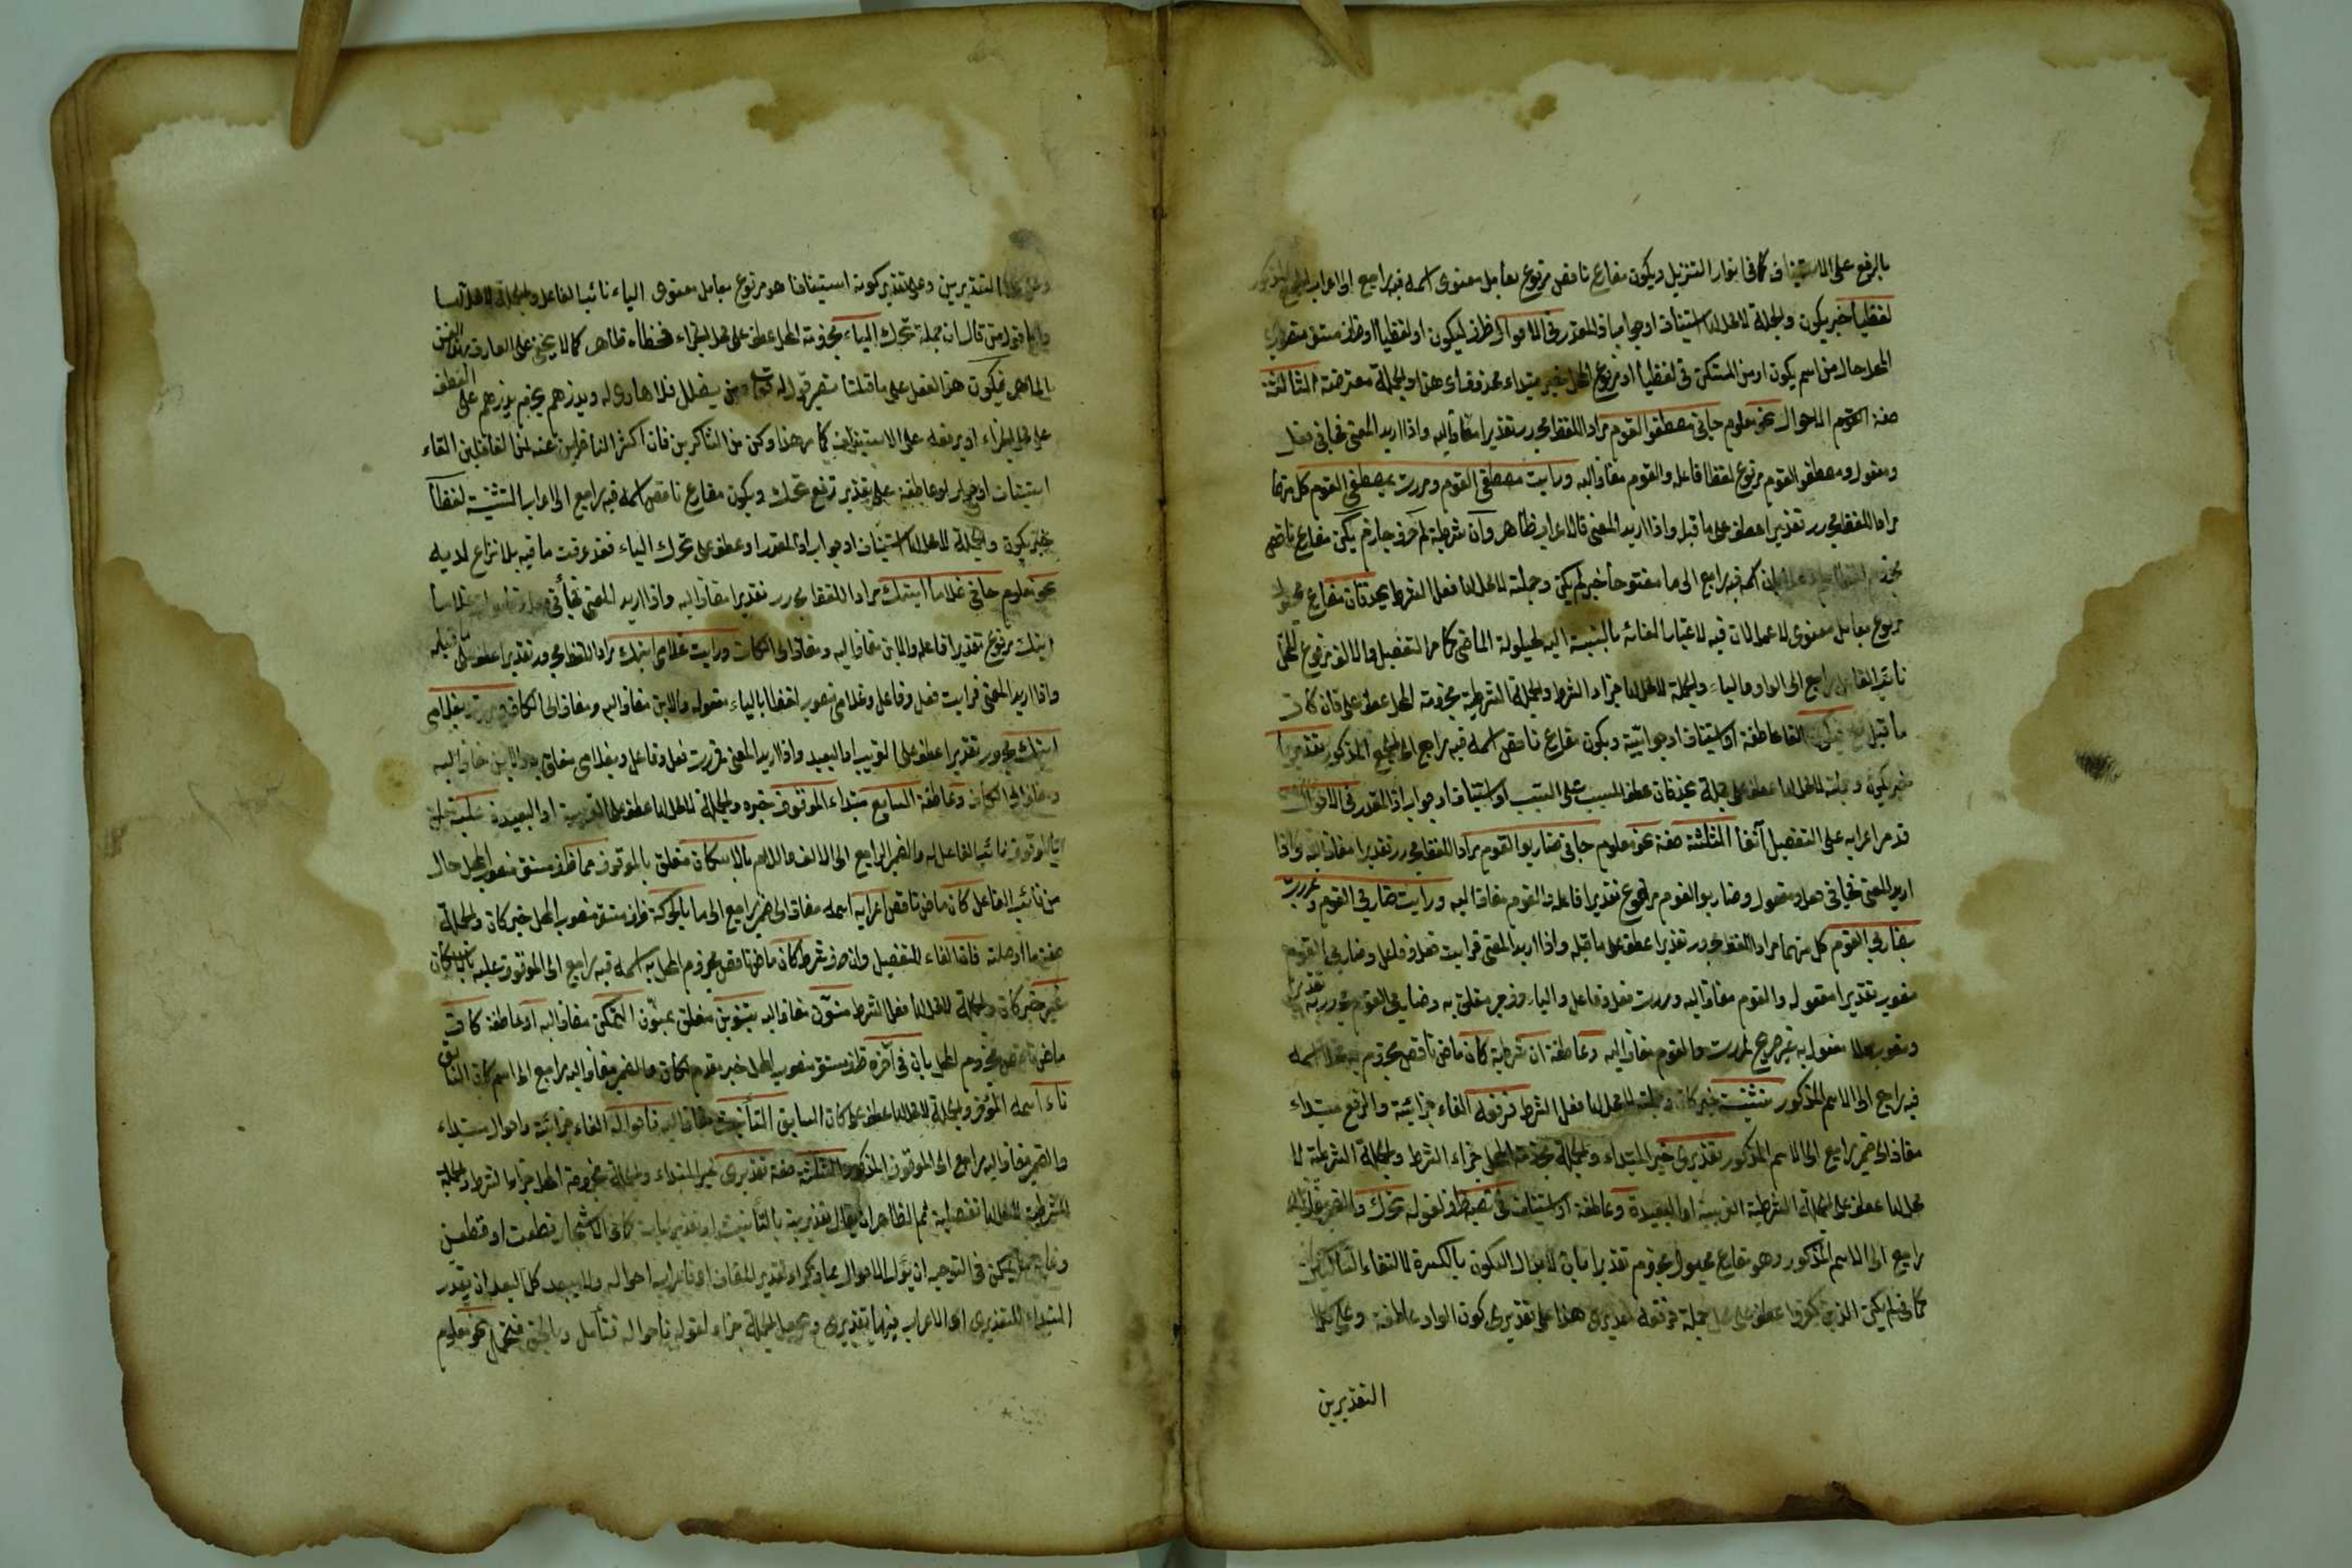 بالرفع على الاستيناف كما فى انوار التنزيل ويكون مضارع ناقص مرفوع بعامل معنوى اسمه فيه راجع الى اعراب الجمع المذكور
لفظيا خبر يكون والجملة لا محل لها استيناف او جواب اذا المقدر فى الاحوال ظرف ليكون او لفظيا او ظرف مستقر منصوب
المحل حال من اسم يكون او من المستكن فى لفظيا او مرفوع المحل خبر مبتداء محذوف اى هذا والجملة معترضة الثالثة
صفة الاحوال نحو معلوم جانى مصطفو القوم مراد اللفظ مجرور تقديرا مضاف اليه واذا اريد المعنى فجانى فعل
ومفعول ومصطفو القوم مرفوع لفظا فاعله والقوم مضاف اليه ورايت مصطفى القوم ومررت بمصطفى القوم كل منهما
مراد اللفظ مجرور تقديرا عطف على ما قبل واذا اريد المعنى فالاعراب ظاهر وان شرطية لم حرف جازم يكن مضارع ناقص
اسمه فيه راجع الى ما مفتوحا خبر لم يكن وجملته لا محل لها فعل الشرط يحذفان مضارع مجهول
مرفوع بعامل معنوى
نائب الفاعل راجع الى الواو والياء والجملة لا محل لها جزاء الشرط والجملة الشرطية مجزومة المحل عطف على فان كان
ما قبل فيكون الفاء عاطفة او استيناف او جوابية ويكون مضارع ناقص اسمه فيه راجع الى الجمع المذكور تقديريا
خبر يكون وجملته لا محل لها عطف على جملة يحذفان عطف المسبب على السبب او استيناف او جواب اذا المقدر فى الاحوال
قد مر اعرابه على التفصيل آنفا الثلثة صفة نحو معلوم جانى ضاربو القوم مراد اللفظ مجرور تقديرا مضاف اليه واذا
اريد المعنى فجانى فعل ومفعول وضاربو القوم مرفوع تقديرا فاعله والقوم مضاف اليه ورايت ضاربى القوم ومررت
بضاربى القوم كل منهما مراد اللفظ مجرور تقديرا عطف على ما قبله واذا اريد المعنى فرايت فعل وفاعل وضاربى القوم
منصوب تقديرا مفعوله والقوم مضاف اليه ومررت فعل وفاعل والياء حرف جر متعلق به وضاربى القوم مجرور به تقديرا
ومنصوب محلا مفعول به غير صريح لمررت والقوم مضاف اليه وعاطفة ان شرطية كان ماض ناقص مجزوم به محلا اسمه
فيه راجع الى الاسم المذكور تثنية خبر كان وجملته لا محل لها فعل الشرط فرفعه الفاء جزائية والرفع مبتداء
مضاف الى ضمير راجع الى الاسم المذكور تقديرى خبر المبتداء والجملة مجزومة المحل جزاء الشرط والجملة الشرطية لا
محل لها عطف على الجملة الشرطية القريبة او البعيدة وعاطفة او استيناف
راجع الى الاسم المذكور وهو مضارع مجهول مجزوم تقديرا بان لابدال السكون بالكسرة لالتقاء الساكنين
كما فى لم يكن الذين كفروا عطف على محل جملة فرفعه تقديرى هذا على تقديرى كون الواو عاطفة وعلى كلا
التقديرين
التقديرين وعلى تقدير كونه استينافا هو مرفوع بعامل معنوى الياء نائب الفاعل والجملة لا محل لها
واما قول من قال ان جملة تحرك الياء مجزومة المحل عطف على محل الجزاء فخطاء ظاهر كما لا يخفى على العارف بهذا الفن
الماهر فيكون هذا العطف على ما قلنا نظير قوله تعالى ومن يضلل فلا هادى له ويذرهم بجزم يذرهم على العطف
على محل الجزاء او برفعه على الاستيناف كما مر هذا وكن من الشاكرين فان اكثر الناظرين عنه لمن الغافلين الفاء
استيناف او جواب او عاطفة على تقدير رفع تحرك ويكون مضارع ناقص اسمه فيه راجع الى اعراب التثنية لفظا
خبر يكون والجملة لا محل لها استيناف او جواب اذا المقدر او عطف على تحرك الياء فقد عرفت ما فيه بلا نزاع لديه
نحو معلوم جانى غلاما ابنك مراد اللفظ مجرور تقديرا مضاف اليه واذا اريد المعنى فجانى فعل ومفعول وغلاما
ابنك مرفوع تقديرا فاعله والابن مضاف اليه ومضاف الى الكاف ورايت غلامى ابنك مراد اللفظ مجرور تقديرا عطف على ما قبله
واذا اريد المعنى فرايت فعل وفاعل وغلامى منصوب لفظا بالياء مفعوله والابن مضاف اليه ومضاف الى الكاف ومررت بغلامى
ابنك مجرور تقديرا عطف على القريب او البعيد واذا اريد المعنى فمررت فعل وفاعل وبغلامى متعلق به والابن مضاف اليه
ومضاف الى الكاف وعاطفة السابع مبتداء الموقوف خبره والجملة لا محل لها عطف على القريبة او البعيدة
نائب الفاعل له والضمير الراجع الى الالف واللام بالاسكان متعلق بالموقوف مما ظرف مستقر منصوب المحل حال
من نائب الفاعل كان ماض ناقص اعرابه اسمه مضاف الى ضمير راجع الى ما بالحركة ظرف مستقر منصوب المحل خبر كان والجملة
صفة ما او صلته فان الفاء للتفصيل وان حرف شرط كان ماض ناقص مجزوم المحل به اسمه فيه راجع الى الموقوف عليه بالاسكان
غير خبر كان والجملة لا محل لها فعل الشرط منون مضاف اليه بتنوين متعلق بمنون التمكن مضاف اليه او عاطفة كان
ماض ناقص مجزوم المحل بان فى آخره ظرف مستقر منصوب المحل خبر مقدم لكان والضمير مضاف اليه راجع الى اسم كان السابق
تاء اسمه المؤخر والجملة لا محل لها عطف على كان السابق التأنيث مضاف اليه فاحواله الفاء جزائية واحوال مبتداء
والضمير مضاف اليه راجع الى الموقوف المذكور الثلثة صفة تقديرى خبر المبتداء والجملة مجزومة المحل جزاء الشرط والجملة
الشرطية لا محل لها تفصيلية ثم الظاهر ان يقال تقديرية بالتأنيث او تقديريات كما فى الاشجار قطعت او قطعن
يمكن فى التوجيه ان يؤل الاحوال بما ذكر او تقدير المضاف اى اعراب احواله ولا يبعد كل البعد ان يقدر
المبتداء للتقديرى اى الاعراب فيها تقديرى ويجعل الجملة جزاء لقوله فاحواله فتأمل وبالحق فتحمل نحو معلوم